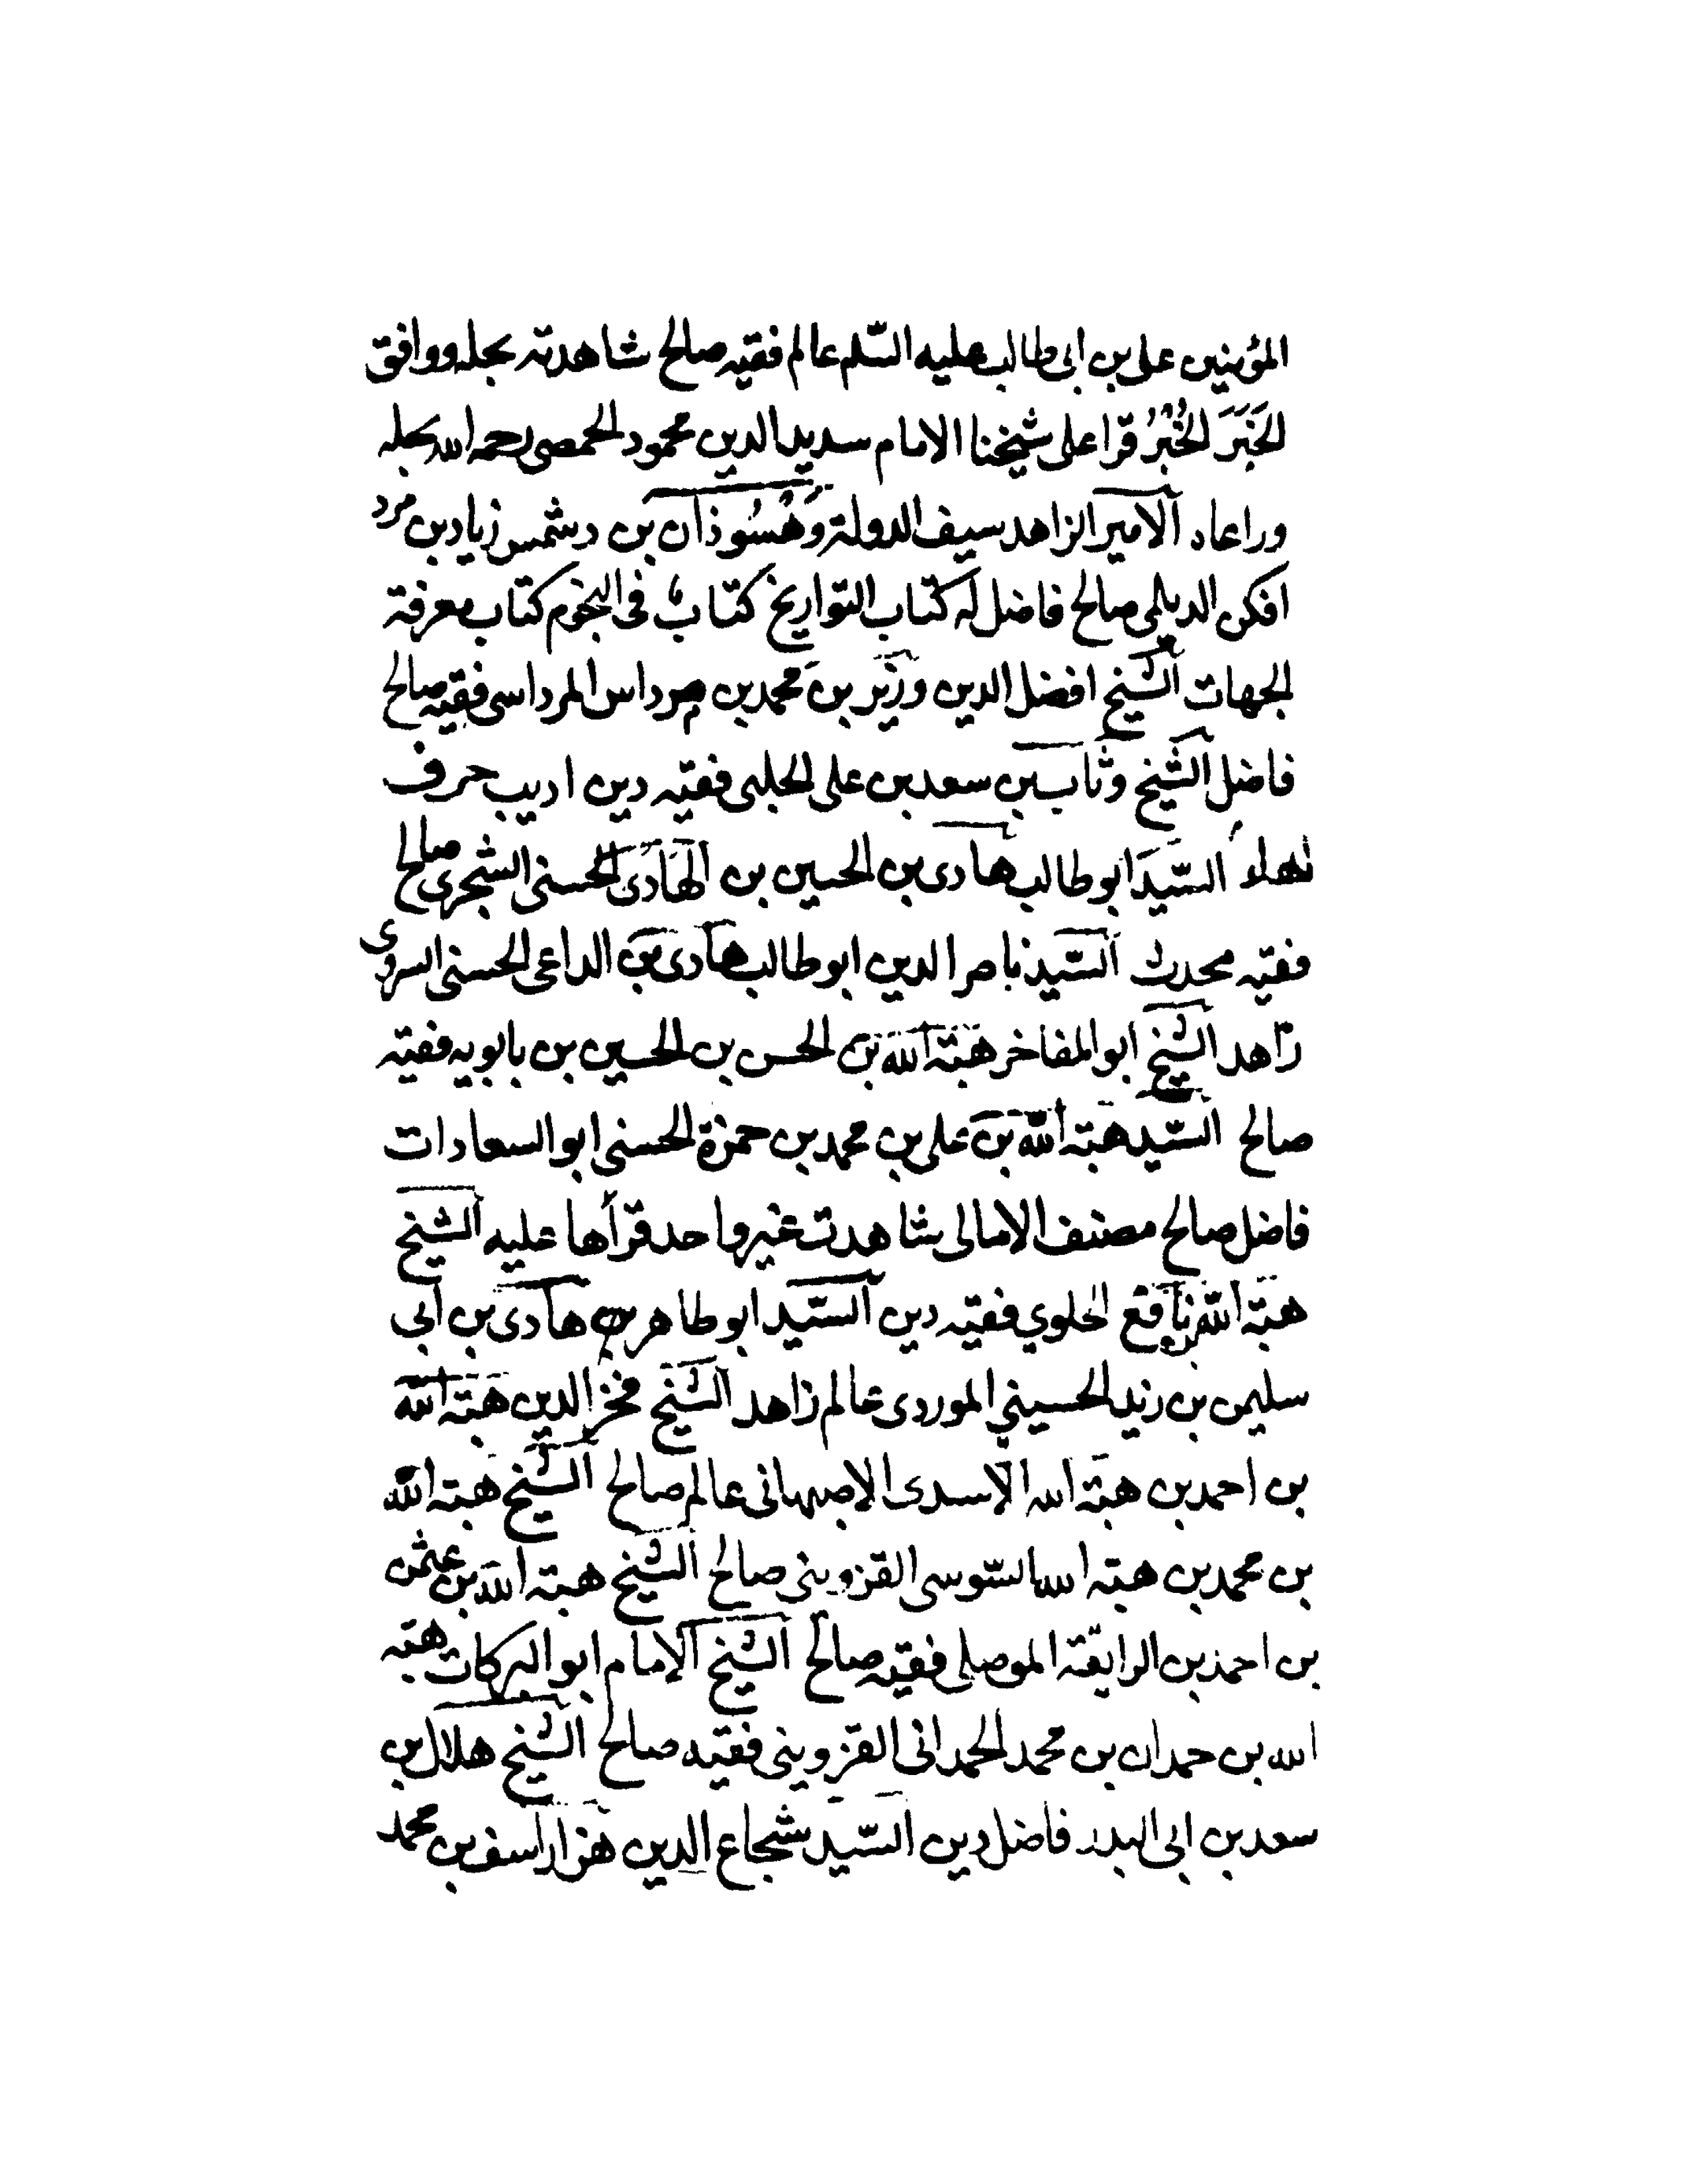 المؤمنين على بن ابى طالب عليه السّلم عالم فقيه صالح شاهدته بحله ووافق
الخَبَرَ الخُبْرُ قرا على شيخنا الامام سديد الدين محمود الحمصى رحمه الله بحله
وراعاه الامير الزاهد سيف الدولة وَهْسُوذان بن دشمس زيار بن مرد
افكن الديلمى صالح فاضل له كتاب التواريخ كتابٌ فى النجوم كتاب معرفة
الجهات الشيخ افضل الدين وزير بن محمد بن مرداس المرداسى فقيه صالح
فاضل الشيخ وثاب بن سعد بن على الحلبى فقيه دين اديب حرف
الهاء السّيد ابو طالب هادى بن الحسين بن الهادى الحسنى الشجرى صالح
فقيه محدث السّيد ناصر الدين ابو طالب هادى بن الداعى الحسنى السروى
زاهد الشيخ ابو المفاخر هبة الله بن الحسن بن الحسين بن بابويه فقيه
صالح السّيد هبة الله بن على بن محمد بن حمزة الحسنى ابو السعادات
فاضل صالح مصنف الامالى شاهدت غير واحد قرأها عليه الشيخ
هبة الله بن نافع الحلوي فقيه دين السّيد ابو طاهر هادى بن أبي
سليمن بن زيد الحسيني الموردى عالم زاهد الشيخ فخر الدين هبة الله
بن احمد بن هبة الله الاسدى الاصبهانى عالم صالح الشيخ هبة الله
بن محمد بن هبة الله السّوسى القزوينى صالح الشيخ هبة الله بن عثمن
بن احمد بن الرايقة الموصلى فقيه صالح الشيخ الامام ابو البركات هبة
الله بن حمدان بن محمد الحمدانى القزوينى فقيه صالح الشيخ هلال بن
سعد بن ابى البدر فاضل دين السّيد شجاع الدين هزاراسف بن محمد